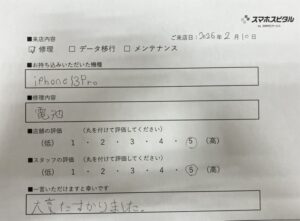 スマホスピタル
■来店内容
ご来店日:2026年2月10日
☑ 修理 □ データ移行 □ メンテナンス
■お持ち込みいただいた機種
iPhone13Pro
■修理内容
電池
■店舗の評価 (丸を付けて評価してください)
(低) 1 ・ 2 ・ 3 ・ 4 ・ 5 (高)
■スタッフの評価 (丸を付けて評価してください)
(低) 1 ・ 2 ・ 3 ・ 4 ・ 5 (高)
■一言いただけますと幸いです
大変たすかりました。